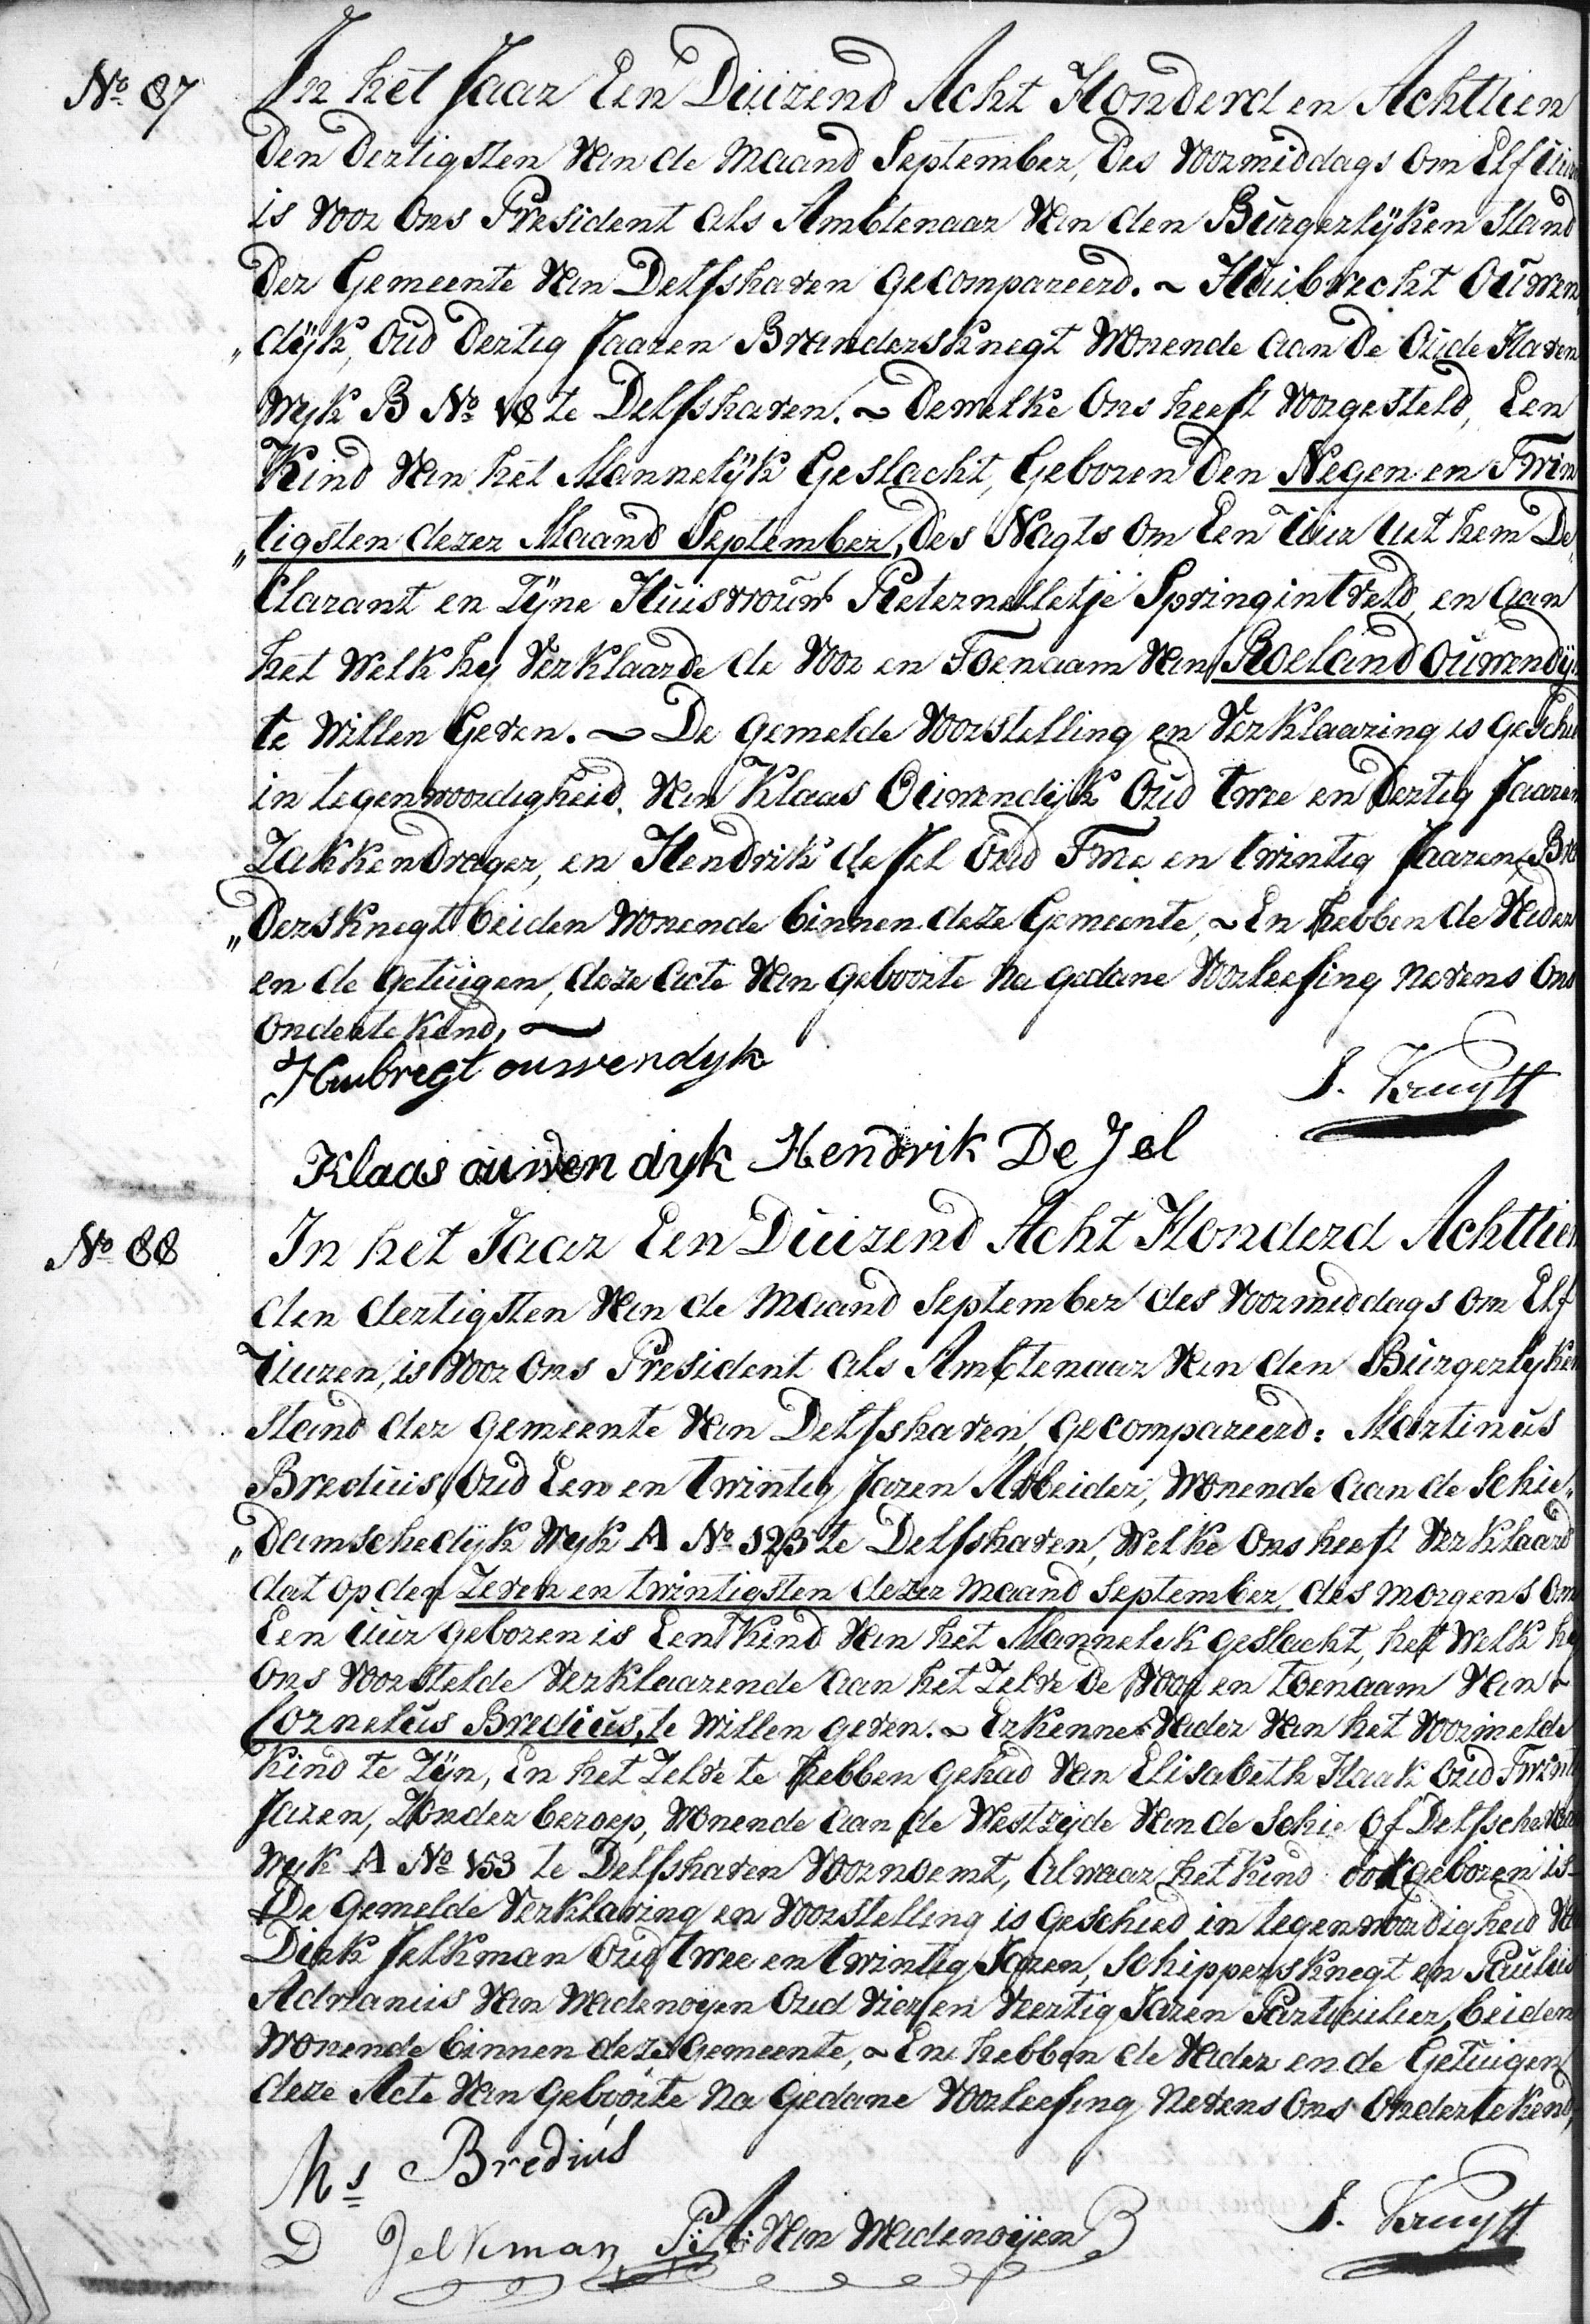 No 87
In het Jaar Een Duizend Acht Honderd en Achttien
Den Dertigsten Van de Maand September, Des Voormiddags om Elf Uur
is voor Ons President als Ambtenaar Van den Burgerlÿken Stand
Der Gemeente Van Delfshaven Gecompareerd. ~ Huibrecht Ouwen„
„dÿk, Oud Dertig Jaaren Brandersknegt Wonende aan De Oude Haven
Wyk B No 18 te Delfshaven. ~ Dewelke Ons heeft Voorgesteld, Een
Kind Van het Mannelÿk Geslacht, Geboren Den Negen en Twin
„tigsten dezer Maand September, Des Nagts om Een Uur uit hem De„
Clarant en Zÿne Huisvrouw Pieternelletje Springintveld, en aan
het Welk hy Verklaarde de Voor en Toenaam Van Roeland Ouwendÿk
te Willen Geven. ~ De gemelde Voorstelling en Verklaaring is Geschied
in tegenwoordigheid Van Klaas Ouwendÿk Oud twee en Dertig Jaaren
Zakkendrager, en Hendrik de Jel Oud Twe en twintig Jaaren, Bran
„Dersknegt beiden Wonende binnen deze Gemeente, ~ En hebben de Vader
en de Getuigen, deze acte Van geboorte Na gedane Voorleesing Nevens Ons
Ondertekend, ~
Huibregt ouwendyk
J. Kruyff
Klaas ouwen dyk Hendrik De Jel
No 88
In het Jaar Een Duizend Acht Honderd Achttien
den dertigsten Van de Maand September des Voormiddags om Elf
Uuren, is Voor Ons President als Ambtenaar Van den Burgerlyken
Stand der Gemeente Van Delfshaven, Gecompareerd: Martinus
Bredius, Oud Een en twintig Jaren Arbeider, Wonende aan de Schie„
„Damschedÿk Wyk A No 123 te Delfshaven, Welke Ons heeft Verklaard
dat op den Zeven en twintigsten dezer Maand September, des Morgens om
Een Uur geboren is Een Kind Van het Mannelek geslacht, het Welk hy
Ons Voorstelde Verklaarende aan het Zelve De Voor en Toenaam Van
Cornelus Bredius, te Willen geven. ~ Erkennen Vader Van het Voormelde
Kind te Zÿn, En het Zelve te hebben gehad Van Elisabeth Haak Oud Twintig
Jaren, Zonder beroep, Wonende aan de Westzÿde Van de Schie of Delfsche
Wyk A No 153 te Delfshaven Voornoemt, alwaar het Kind ook geboren is
De Gemelde Verklaring en Voorstelling is Geschied in tegenwoordigheid Van
Dirk Jelkman Oud twee en twintig Jaren, Schippersknegt en Paulus
Adrianus Van Wadenoyen Oud Vier en Veertig Jaren Particulier, beiden
Wonende binnen deze Gemeente, ~ En hebben de Vader en de Getuigen
deze Acte Van Geboorte Na Gedane Voorleesing Nevens Ons Ondertekend,
Ms Bredius
J. Kruyff
D Jelkman P: A: Van Wadenoÿen